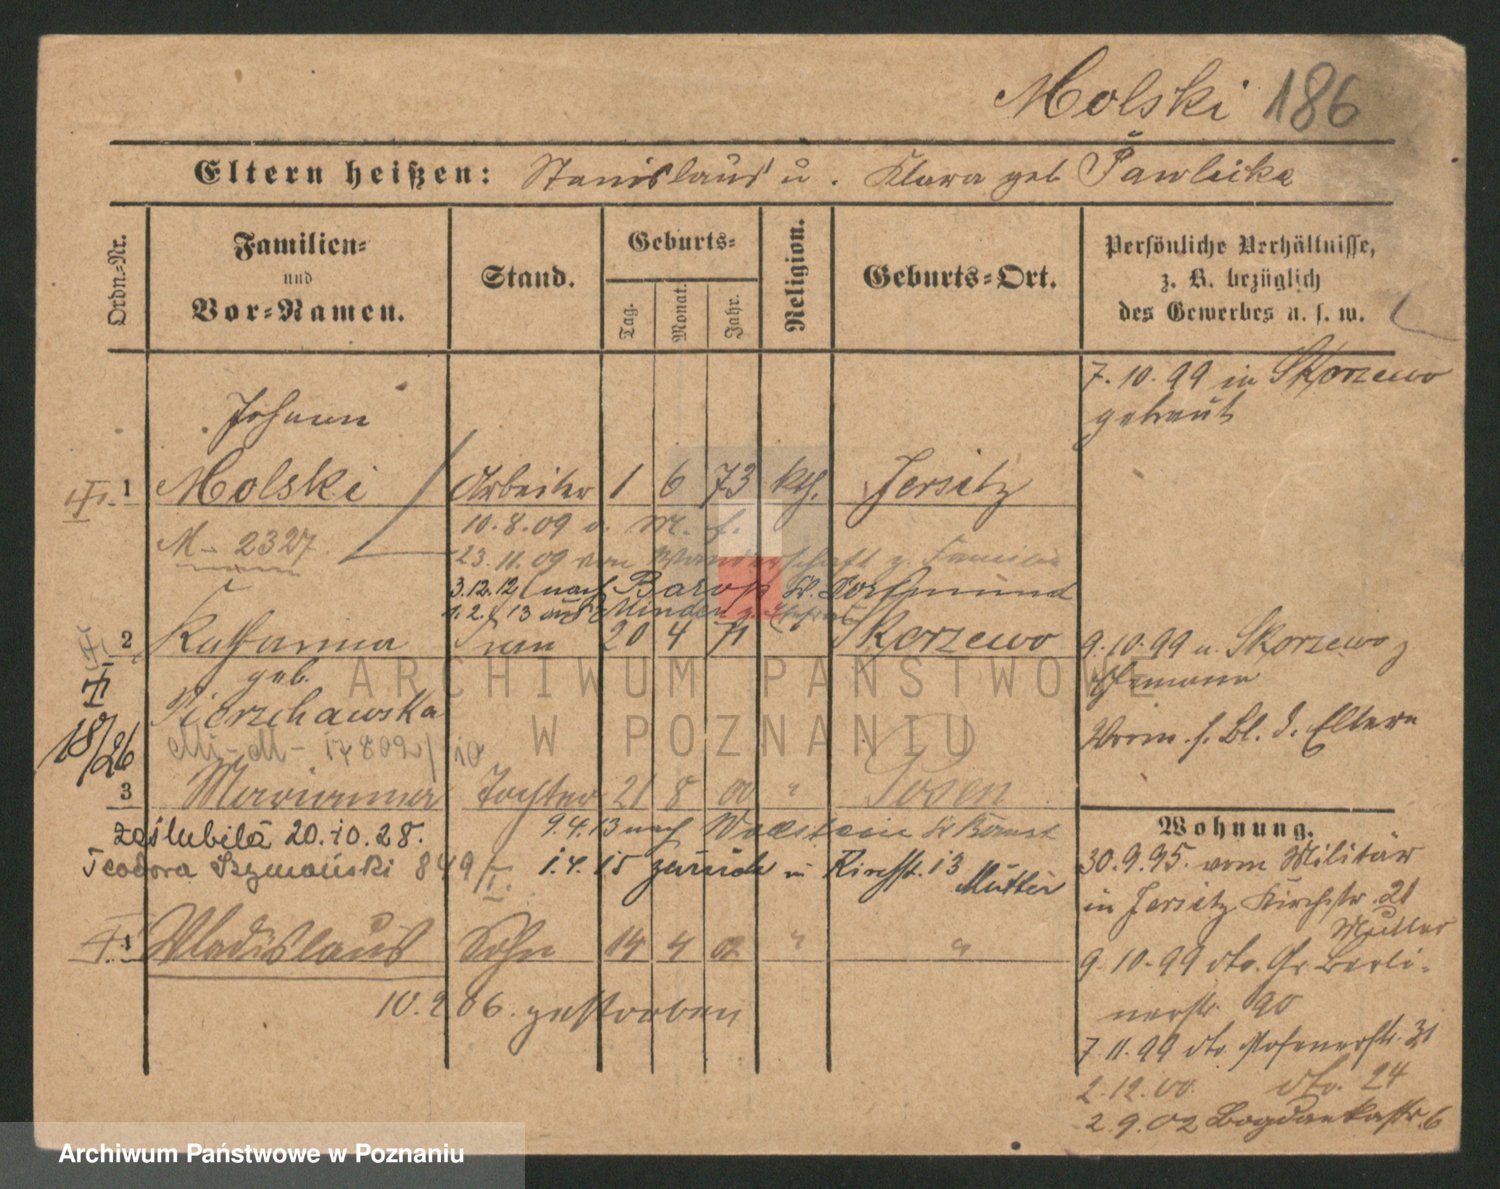 Molski 186
Eltern heißen: Stanislaus u. Klara geb Pawlicka
Ordn.-Nr.
Familien-
und
Vor-Namen.
Stand.
Geburts-
Tag.
Monat.
Jahr.
Religion.
Geburts-Ort.
Persönliche Verhältnisse,
z. B. bezüglich
des Gewerbes u. s. w.
7.10.99 in Skorzewo
getraut
Johann
1 Molski Arbeiter 1 6 73 kth. Jersitz
M- 2327
10.8.09 M.
23.11.09 von Wanderschaft z. Familie
3.12.12 nach Barop Kr. Dortmund
1.2.13 aus Minden z. Ehefrau
2 Katharina Frau 20 4 71 Skorzewo
geb.
Pierzchawska
18/26
9.10.99 v. Skorzewo z
Ehemann
Vorm. s. Bl. d. Eltern
Mi-M- 17802/10
3 Marianna Tochter 21 8 00 " Posen
9.4.13 nach Wollstein Kr Bomst
zaślubiła 20.10.28.
Teodora Szymański 849/I.
1.4.15 zurück Kirchstr. 13
Mutter
4 Wladislaus Sohn 14 4 02 " "
10.2.06. gestorben
Wohnung.
30.9.95. vom Militär
in Jersitz Kirchstr. 21
Mutter
9.10.99 dto. Gr. Berli-
nerstr. 90
7.11.99 dto Posenerstr. 31
2.12.00. dto. 24
2.9.02 Bogdankastr. 6
ARCHIWUM PAŃSTWOWE
W POZNANIU
Archiwum Państwowe w Poznaniu